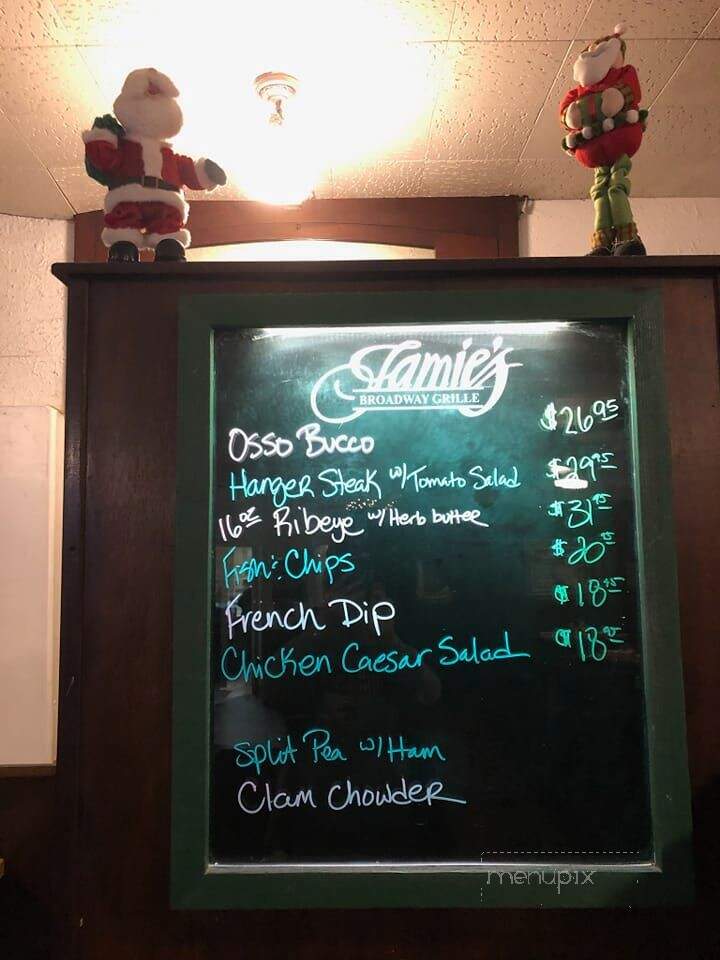 Jamie's
BROADWAY GRILLE
Osso Bucco $26 95
Hanger Steak w/ Tomato Salad $29 95
16 oz Ribeye w/ Herb butter $31 95
Fish & Chips $20 95
French Dip $18 95
Chicken Caesar Salad $18 95
Split Pea w/ Ham
Clam Chowder
menupix